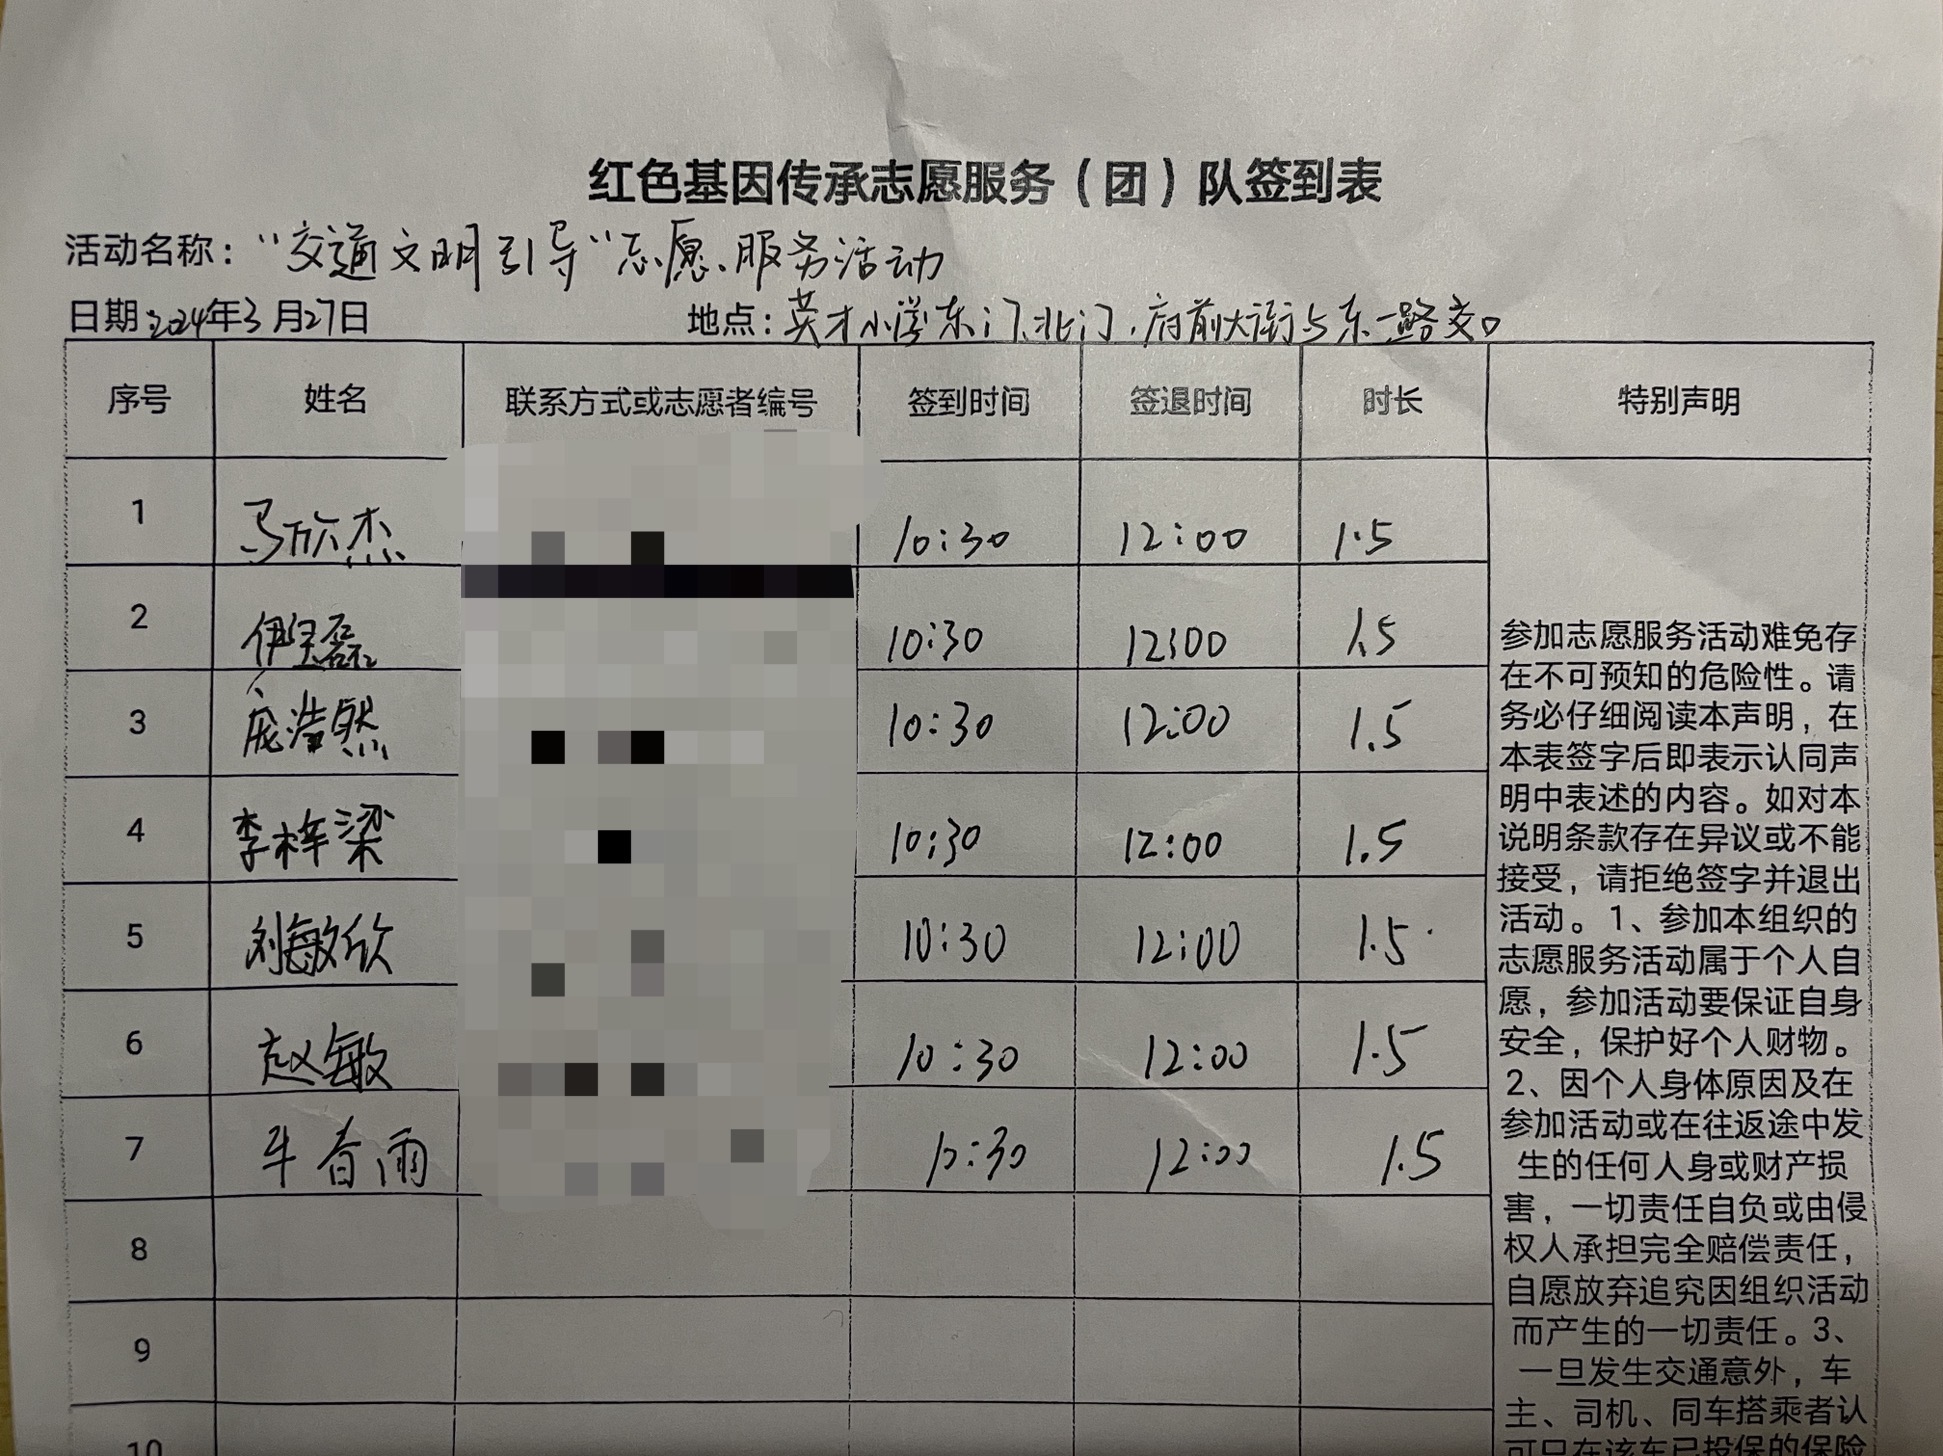 红色基因传承志愿服务（团）队签到表
活动名称：“交通文明引导”志愿服务活动
日期：2024年3月27日 地点：英才小学东门、北门，府前大街与东一路交口
序号 姓名 联系方式或志愿者编号 签到时间 签退时间 时长 特别声明
1 马欣杰 10:30 12:00 1.5
2 伊宝磊 10:30 12:00 1.5
3 庞浩然 10:30 12:00 1.5
4 李梓梁 10:30 12:00 1.5
5 刘敏欣 10:30 12:00 1.5
6 赵敏 10:30 12:00 1.5
7 牟春雨 10:30 12:00 1.5
8
9
10
参加志愿服务活动难免存
在不可预知的危险性。请
务必仔细阅读本声明，在
本表签字后即表示认同声
明中表述的内容。如对本
说明条款存在异议或不能
接受，请拒绝签字并退出
活动。1、参加本组织的
志愿服务活动属于个人自
愿，参加活动要保证自身
安全，保护好个人财物。
2、因个人身体原因及在
参加活动或在往返途中发
生的任何人身或财产损
害，一切责任自负或由侵
权人承担完全赔偿责任，
自愿放弃追究因组织活动
而产生的一切责任。3、
一旦发生交通意外，车
主、司机、同车搭乘者认
可只在该车已投保的保险